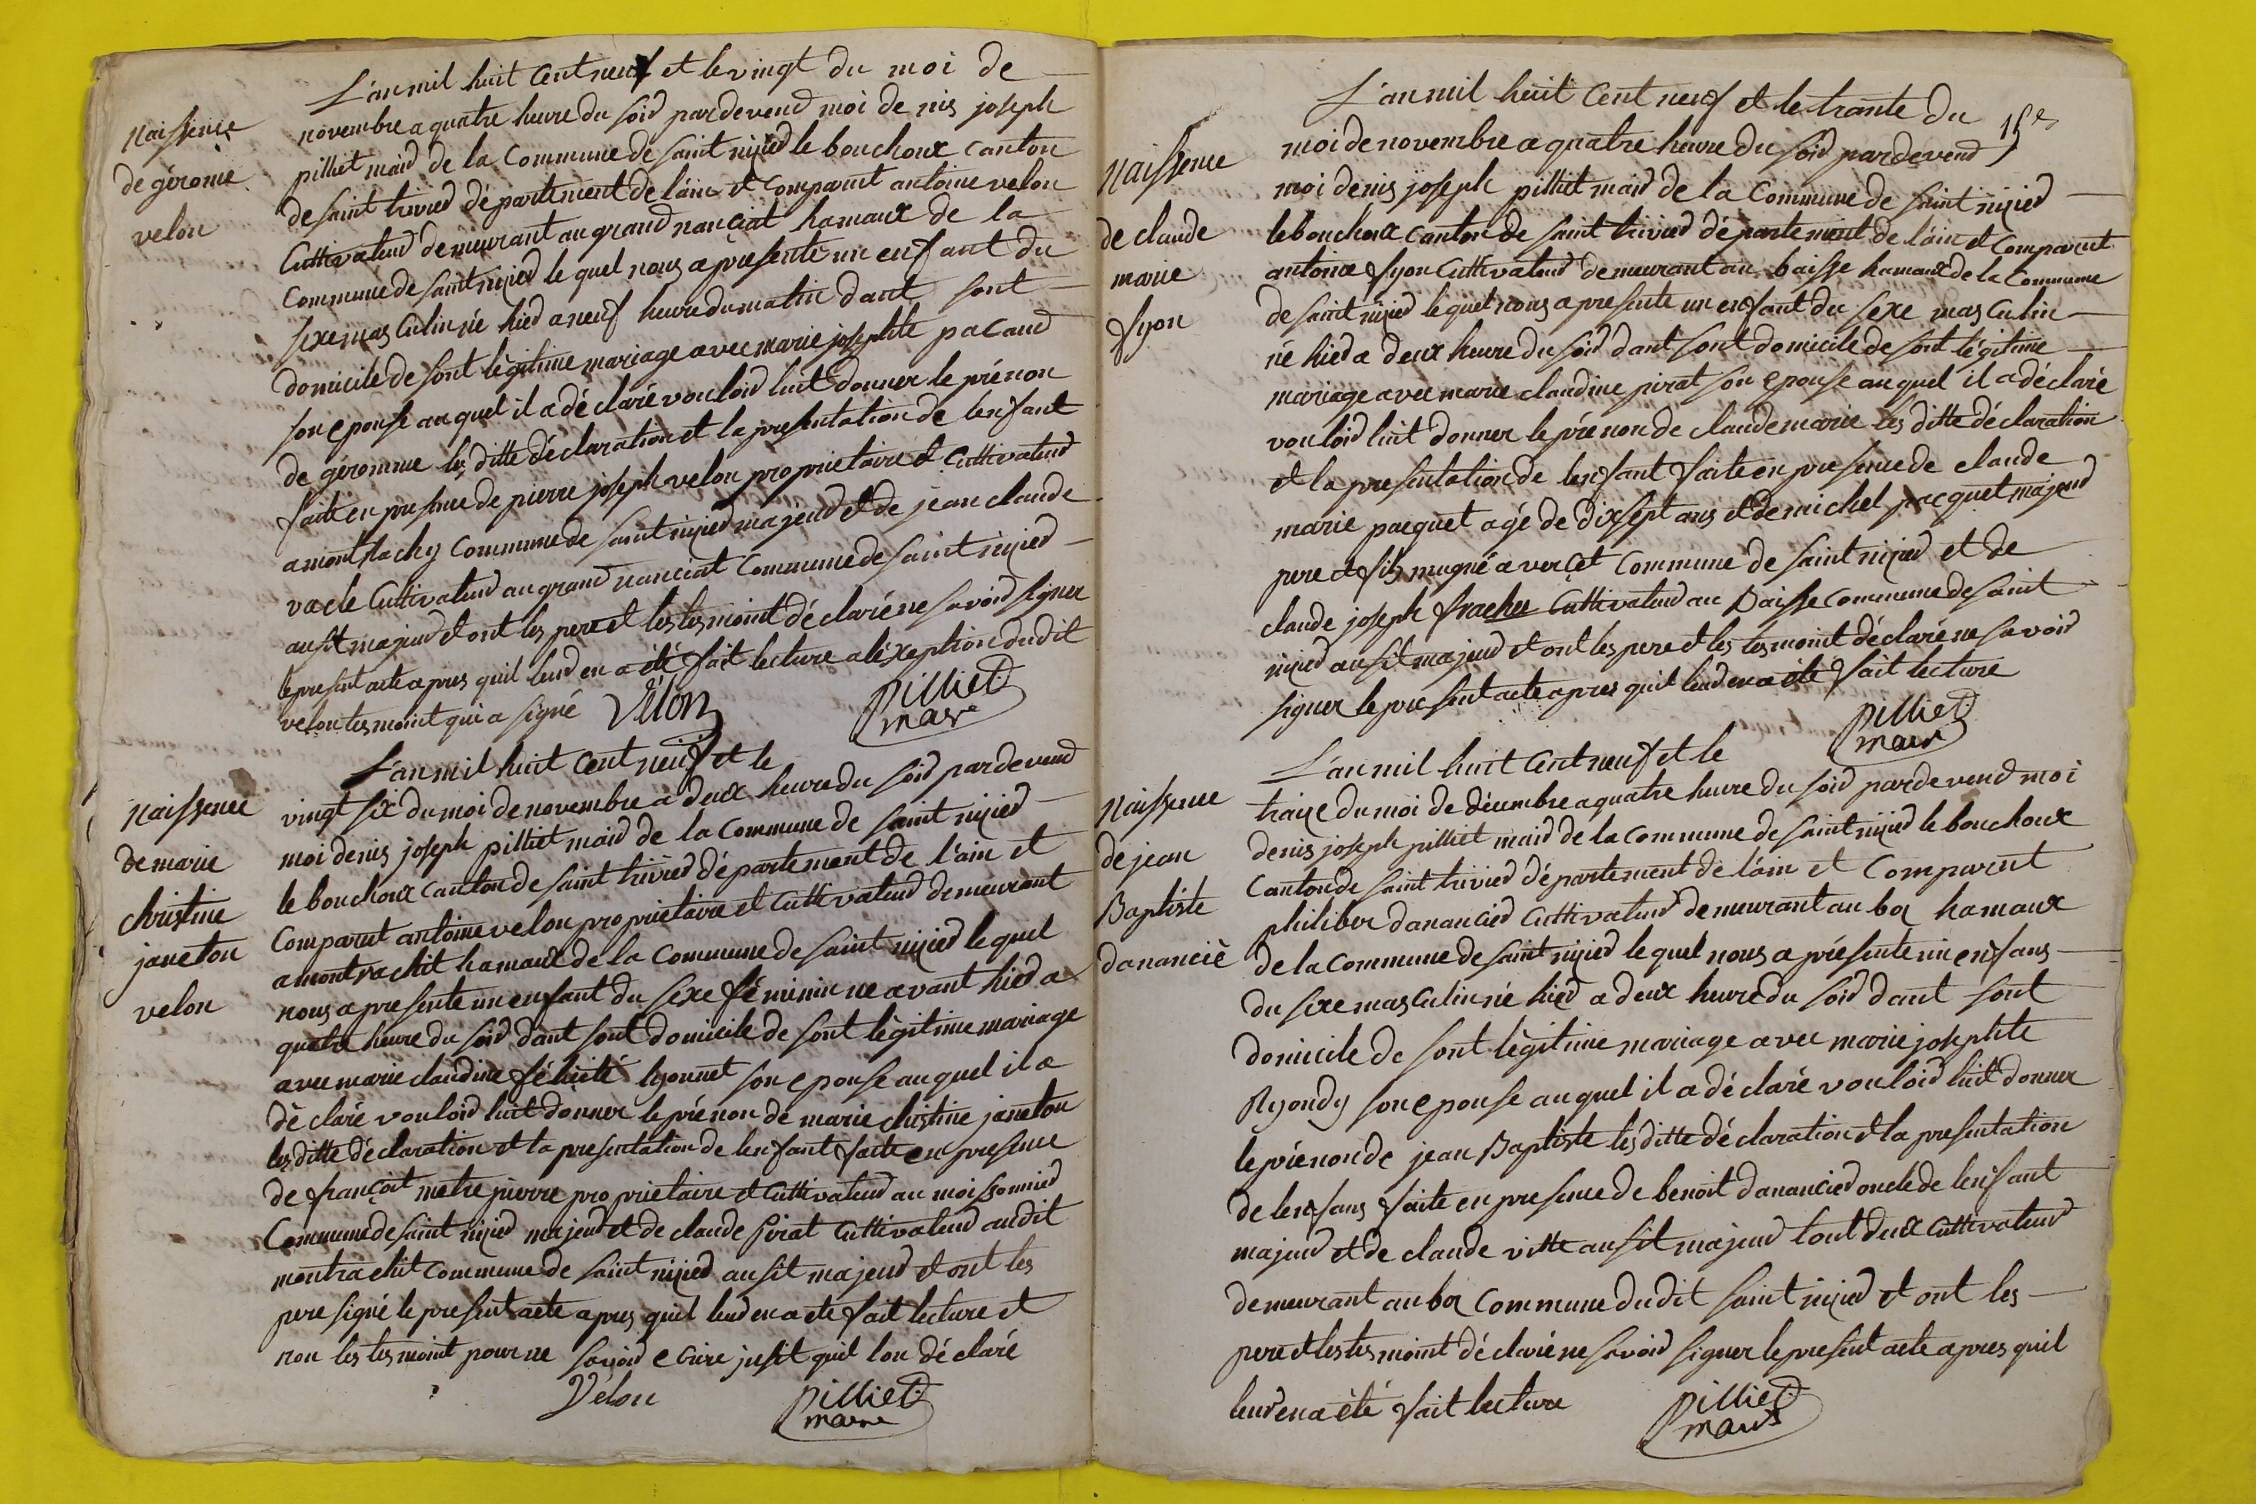 Naissence
de gérome
velon
L'an mil huit Cent neuf et le vingt du moi de
novembre a quatre heure du soir pardevend moi denis joseph
pilliet maid de la Commune de saint nizied le bouchoux canton
de saint trivied département de l'ain et Comparut antoine velon
Cultivateud demeurant au grand nanciat hamaux de la
Commune de saint nizied le quel nous a présenté un enfant du
sexe masculin né hied a neuf heure du matin dant sont
domicile de sont légitime mariage avec marie josephte pacaud
son epouse auquel il a déclaré vouloid luit donner le prénon
de géromme les ditte déclaration et la presentation de lenfant
faite en presence de pierre joseph velon proprietaire et Cultivateud
a montrachy Commune de saint nizied majeud et de jean claude
vacle Cultivateud au grand nanciat Commune de saint nizied
ausit majeud et ont les pere et les tesmoint déclaré ne savoid signer
le present acte apres quil leud en a été fait lecture a léxeption dudit
velon tesmoint qui a signé Vélon Pilliet
maire
Naissence
de marie
christine
janeton
velon
L'an mil huit Cent neuf et le
vingt six du moi de novembre a deux heure du soid pardevend
moi denis joseph pilliet maid de la Commune de saint nizied
le bouchoux canton de saint trivied département de l'ain et
Comparut antoine velon proprietaire et Cultivateud demeurant
a montrachit hamaux de la Commune de saint nizied le quel
nous a presente un enfant du sexe féminin ne avant hied a
quatre heure du soid dant sont domicile de sont légitime mariage
avec marie claudine félicité lyonnet son epouse auquel il a
déclaré vouloid luit donner le prénon de marie christine janeton
les ditte déclaration et la presentation de lenfant faite en presence
de françoit metre pierre proprietaire et Cultivateud au moissonnied
Commune de saint nizied majeud et de claude pirat Cultivateud audit
montrachit Commune de saint nizied ausit majeud et ont les
pere signé le present acte apres quil leud en a eté fait lecture et
non les tesmoint pour ne savoid ecrire jusit quil lon déclaré
Vélon Pilliet
maire
15e
Naissence
de claude
marie
fyon
L'an mil huit Cent neuf et le trante du
moi de novembre a quatre heure du soid pardevend
moi denis joseph pilliet maid de la Commune de saint nizied
le bouchoux canton de saint trivied département de l'ain et Comparut
antoine fyon Cultivateud demeurant au baisse hamaux de la Commune
de saint nizied le quel nous a presente un enfant du sexe masculin
né hied a deux heure du soid dant sont domicile de sont légitime
mariage avec marie claudine pirat son epouse auquel il a déclaré
vouloid luit donner le prénon de claude marie les ditte déclaration
et la presentation de lenfant faite en presence de claude
marie pacquet agé de dix sept ans et de michel pacquet majeud
pere et fils mugné a verset Commune de saint nizied et de
claude joseph frachet Cultivateud au Baisse Commune de saint
nizied ausit majeud et ont les pere et les tesmoint déclaré ne savoid
signer le present acte apres quil leud en a été fait lecture
Pilliet
maire
Naissence
de jean
Baptiste
dananciè
L'an mil huit Cent neuf et le
traize du moi de décembre a quatre heure du soid pardevend moi
denis joseph pilliet maid de la Commune de saint nizied le bouchoux
Canton de saint trivied département de l'ain et Comparent
philiber danancied Cultivateud demeurant au boz hamaux
de la Commune de saint nizied le quel nous a présente un enfans
du sixe masculin né hied a deux heure du soid dant sont
domicile de sont légitime mariage avec marie josephte
Ryondy son epouse auquel il a déclaré vouloid luit donner
le prénon de jean Baptiste les ditte déclaration et la presentation
de lenfans faite en presence de benoit danancied oncle de lenfant
majeud et de claude vitte ausit majeud tout deux Cultivateud
demeurant au boz Commune dudit saint nizied et ont les
pere et les tesmoint déclaré ne savoid signer le present acte apres quil
leud en a été fait lecture Pilliet
maire